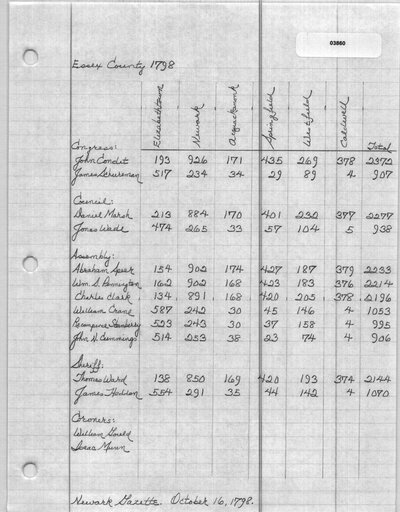 03860
Essex County 1798
Elizabethtown Newark Acquackanonk Springfield Westfield Caldwell
Congress: Total
John Condit 193 926 171 435 269 378 2372
James Schureman 517 234 34 29 89 4 907
Council:
Daniel Marsh 213 884 170 401 232 377 2277
Jonas Wade 474 265 33 57 104 5 938
Assembly:
Abraham Spear 154 902 174 427 187 379 2233
Wm. S. Pennington 162 902 168 423 183 376 2214
Charles Clark 134 891 168 420 205 378 2196
William Crane 587 242 30 45 146 4 1053
Recompence Stanberry 523 243 30 37 158 4 995
John N. Cummings 514 253 38 23 74 4 906
Sheriff:
Thomas Ward 138 850 169 420 193 374 2144
James Hedden 554 291 35 44 142 4 1070
Croners:
William Gould
Isaac Munn
Newark Gazette. October 16, 1798.